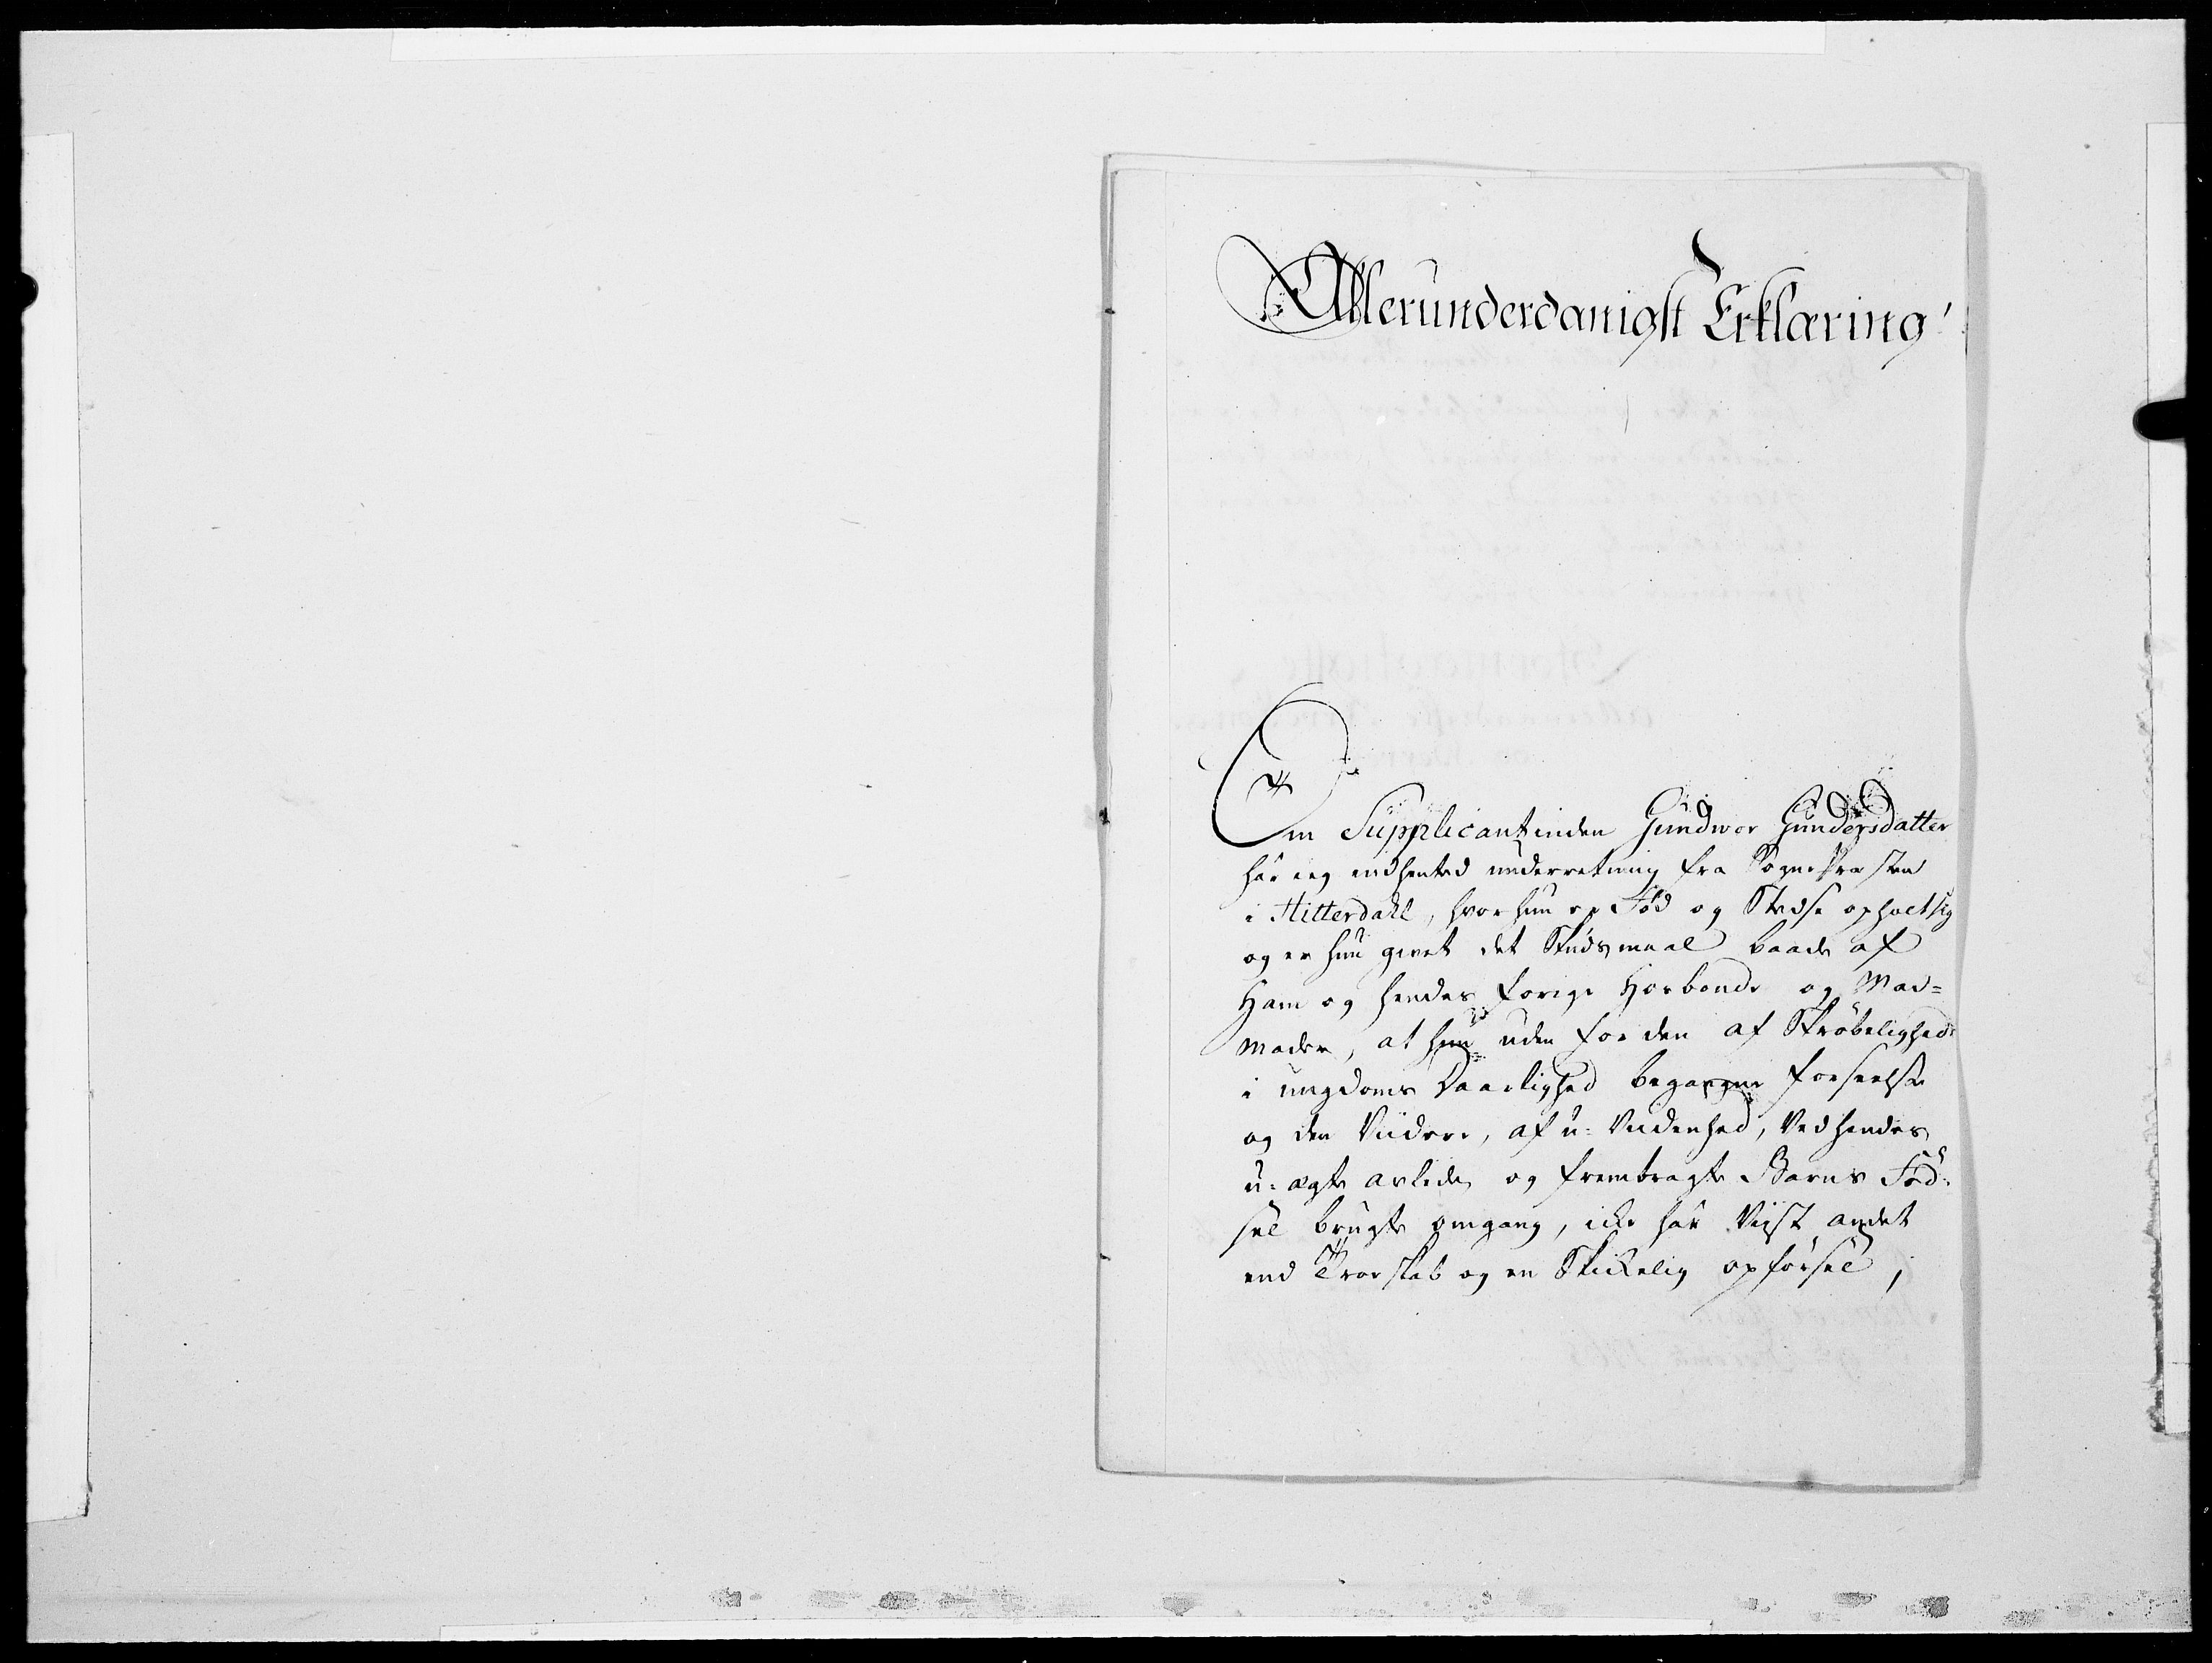 Allerunderdanigst Erklæring!
Om Supplicantinden Gundwor Gundersdatter
har ieg indhented underretning fra Sognepræsten
i Hitterdahl, hvor hun er Fød og Stedse opholt sig
og er hun givet det Skudsmaal baade af
Ham og hendes forige Hosbonde og Mad=
moder, at hun uden for den af Skrøbelighed
i ungdoms Daarlighed begangne forseelse
og den Viidere, af u=Videnhed, Ved hendes
u=ægte avlede og frembragte Barns Fød=
sel brugte omgang, icke har Viist andet
end Troeskab og en Skickelig opførsel,